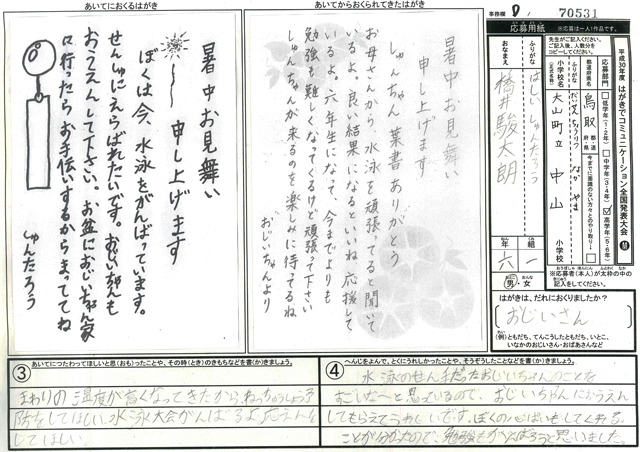 事務欄
70531
あいてにおくるはがき
暑中お見舞い
申し上げます
ぼくは今、水泳をがんばっています。
せんしゅにえらばれたいです。おじいちゃんも
おうえんして下さい。お盆におじいちゃん家
に行ったらお手伝いするからまっててね
しゅんたろう
あいてからおくられてきたはがき
暑中お見舞い
申し上げます
しゅんちゃん 葉書ありがとう
お母さんから、水泳を頑張ってると聞いて
いるよ。良い結果になるといいね 応援して
いるよ。六年生になって 今までよりも
勉強も難しくなってくるけど頑張って下さい
しゅんちゃんが来るのを楽しみに待ってるね
おじいちゃんより
応募用紙
※応募は一人1作品です。
平成30年度 はがきでコミュニケーション全国発表大会
先生がご記入ください。
ご記入後、人数分を
コピーしてください。
応募部門
低学年(1・2年)
中学年(3・4年)
高学年(5・6年)
都道府県名
鳥取
都・道
府・県
今までに面識のない方々とのやり取り
ふりがな
小学校名
(正式名称)
だいせんちょうりつ なかやま
大山町立 中山
小学校
ふりがな
はしい しゅんたろう
おなまえ
橋井駿太朗
六年
一組
男・女
※応募者(本人)が太枠の中の
記入をしてください。
はがきは、だれにおくりましたか?
おじいさん
(例)ともだち、てんこうしたともだち、いとこ、
いなかのおじいさん・おばあさんなど
③
あいてにつたわってほしいと思(おも)ったことや、その時(とき)のきもちなどを書(か)きましょう。
まわりの温度が高くなってきたから、ねっちゅうしょう予
防をしてほしい。水泳大会がんばるよ。応えんを
してほしい。
④
へんじをよんで、とくにうれしかったことや、そうぞうしたことなどを書(か)きましょう。
水泳のせん手だったおじいちゃんのことを
すごいな〜と思っているので、おじいちゃんにおうえん
してもらえてうれしいです。ぼくの心ぱいもしてくれる
ことが分かたので、勉強もがんばろうと思いました。